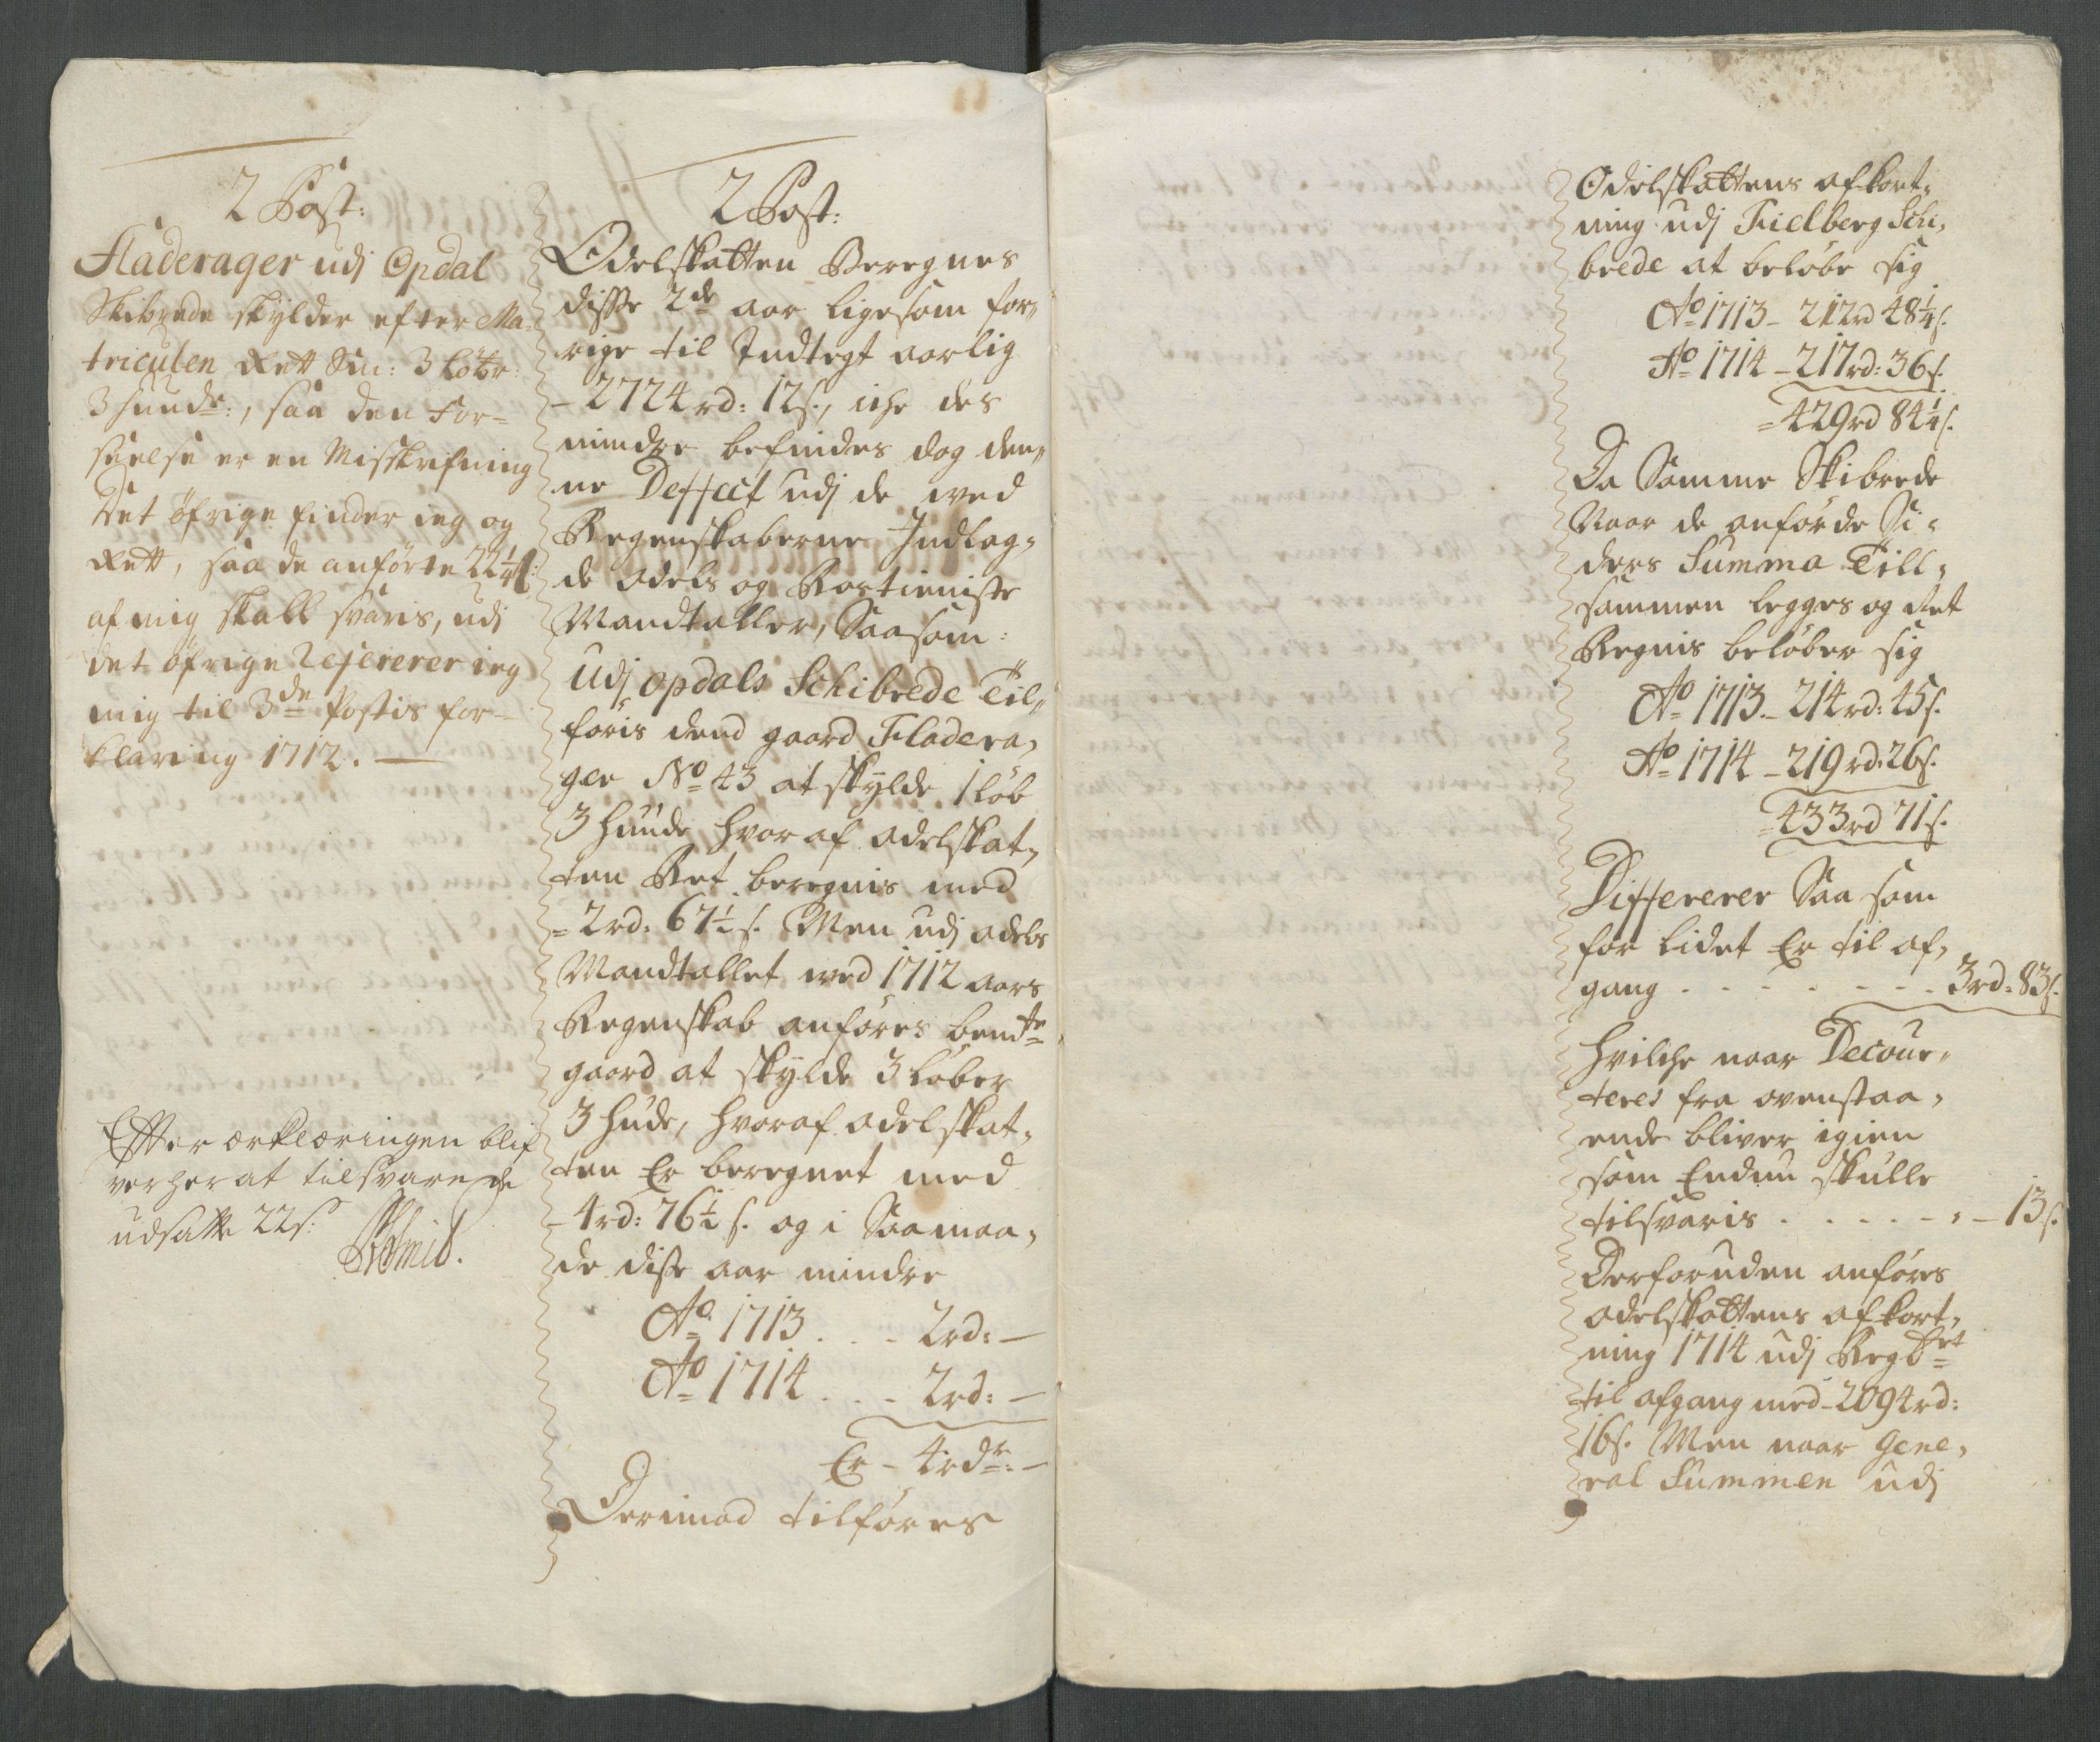 2 Post:
Fladerager udj Opdal
Skibrede skylder efter Ma-
triculen Rett Sm: 3 löbr:
3 hunde:, saa den For-
seelse er en Misskrifning
Det öfrige finder ieg og
Rett, saa de anförte 22 1/4 s:
af mig skall svaris, udj
det öfrige Refererer ieg
mig til 3de Postis for-
klaring 1712. —
Effter erklæringen blif
ver her at tilsvare de
udsatte 22 s:
2 Post:
Odelskatten Beregnes
disse 2de aar ligesom for-
rige til Indtegt aarlig
- 2724 rd: 12 s., iche des
mindre befindes dog den-
ne Deffect udj de wed
Regenskaberne Indlag-
de odels og Rostienniste
Mandtaller, Saasom:
Udj opdals Schibrede Til-
föris dend gaard Fladera-
ger No 43 at skylde 1 löb
3 hunde hvoraf odelskat-
ten Ret beregnis med
= 2 rd: 67 1/2 s. Men udj odels
Mandtallet wed 1712 aars
Regenskab anföres bemte
gaard at skylde 3 löber
3 hude, hvoraf odelskat-
ten Er beregnet med
- 4 rd: 76 1/2 s. og i Saamaa-
de disse aar mindre
Ao 1713 . . - 2 rd: —
Ao 1714 . . - 2 rd: —
Er - 4 rdr: —
Derimod tilföres
Odelskattens afkort-
ning udj Fielberg Schi-
brede at belöbe sig
Ao 1713 - 212 rd 48 1/4 s.
Ao 1714 - 217 rd: 36 s.
= 429 rd 84 1/4 s.
Da Samme Skibrede
Naar de anförde Si-
ders Summa Till-
sammen legges og Ret
Regnis belöber sig
Ao 1713 - 214 rd: 45 s.
Ao 1714 - 219 rd. 26 s.
= 433 rd 71 s.
Differerer Saa som
for lidet Er til af-
gang - - - - - - - 3 rd: 83 s.
hvilche naar Decour-
teres fra ovenstaa-
ende bliver igien
som Endnu skulle
tilsvaris . . . . - - - 13 s.
Derforuden anföres
odelskattens afkort-
ning 1714 udj Regbet
til afgang med - 2094 rd:
16 s. Men naar Gene-
ral Summen udj